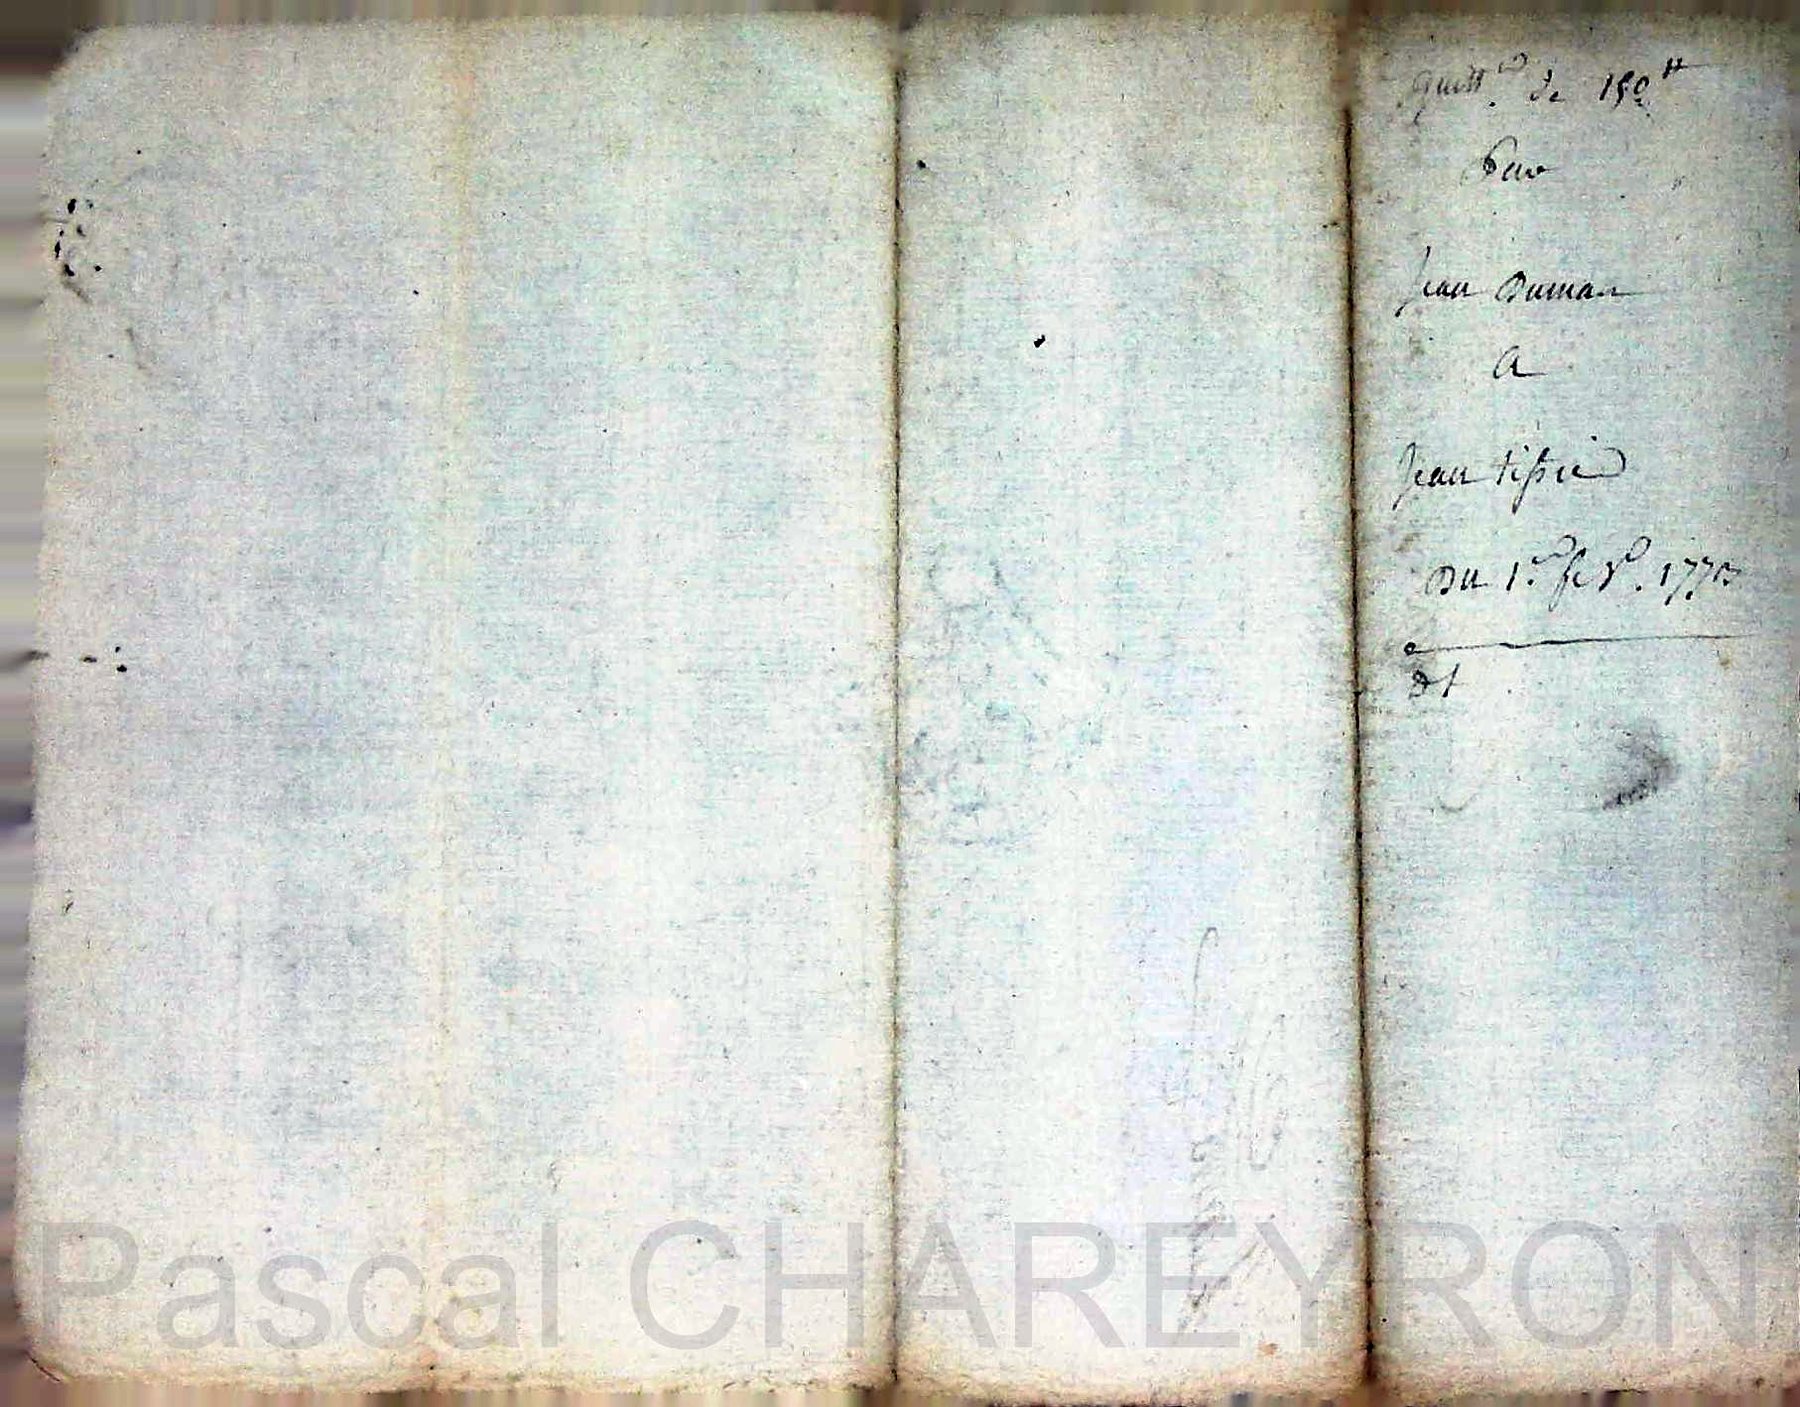 quitt.ce de 150 ₶
Par
Jean Dumas
A
Jean tissier
Du 1.er fev.r 1773
Pascal CHAREYRON